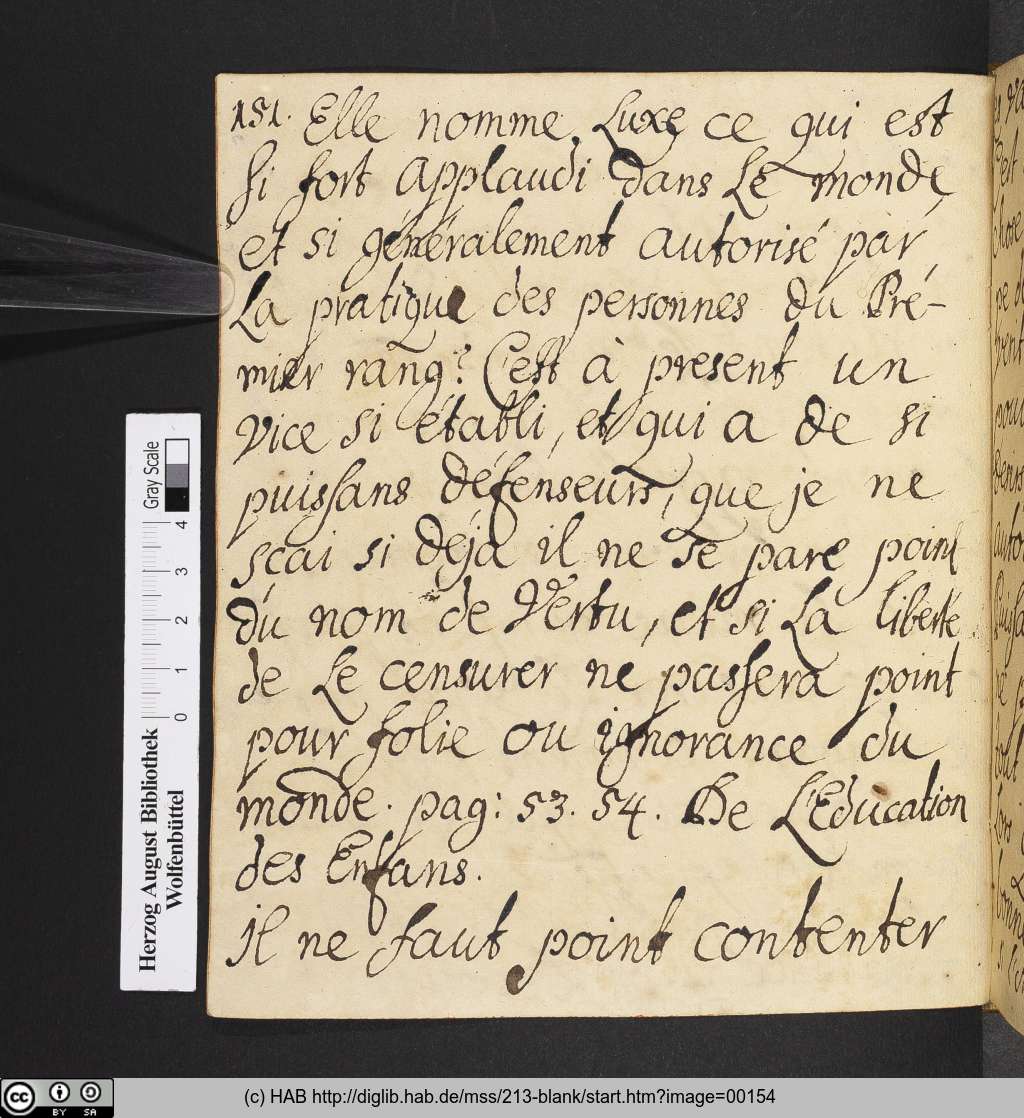 151. Elle nomme Luxe ce qui est
si fort applaudi dans Le monde,
et si généralement autorisé par
La pratique des personnes du Pré-
mier rang? C'est à present un
vice si établi, et qui a de si
puissans défenseurs, que je ne
scai si déja il ne se pare point
du nom de Vertu, et si La liberté
de Le censurer ne passera point
pour folie ou ignorance du
monde. pag: 53. 54. De L'Education
des Enfans.
il ne faut point contenter
Gray Scale
0 1 2 3 4
Herzog August Bibliothek
Wolfenbüttel
cc BY SA
(c) HAB http://diglib.hab.de/mss/213-blank/start.htm?image=00154